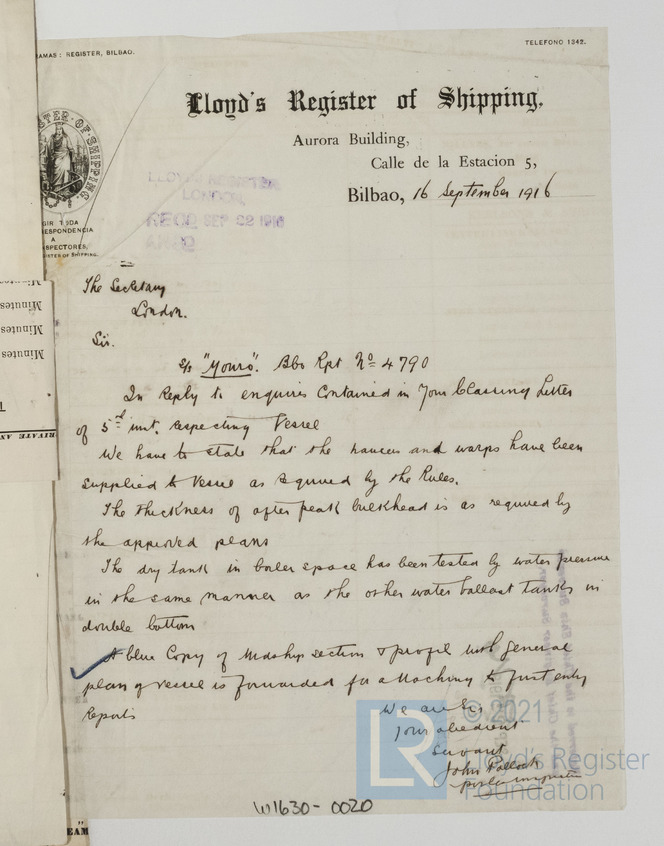 RAMAS: REGISTER, BILBAO.
TELEFONO 1342.
Lloyd's Register of Shipping,
Aurora Building,
Calle de la Estacion 5,
Bilbao, 16 September 1916
LLOYD'S REGISTER,
LONDON,
RECD SEP 22 1916
REGISTER OF SHIPPING
GIR TODA
RESPONDENCIA
A
INSPECTORES,
GISTER OF SHIPPING.
The Secretary
London.
Sir.
s/s "Yours". Bbo Rpt No 4790
In Reply to enquiries Contained in Your Classing Letter
of 5th inst. respecting Vessel
We have to state that the hawsers and warps have been
supplied to Vessel as required by the Rules.
The thickness of after peak bulkhead is as required by
the approved plans
The dry tank in boiler space has been tested by water pressure
in the same manner as the other water ballast tanks in
double bottom
A blue Copy of Midship section & profil with general
plan of vessel is forwarded for attaching to first entry
Reports
We are Sir
Your obedient
servant
John Pollock
Minutes
Minutes
Minutes
PRIVATE AN
EAM"
W1630-0020
© 2021
LR
Lloyd's Register
Foundation